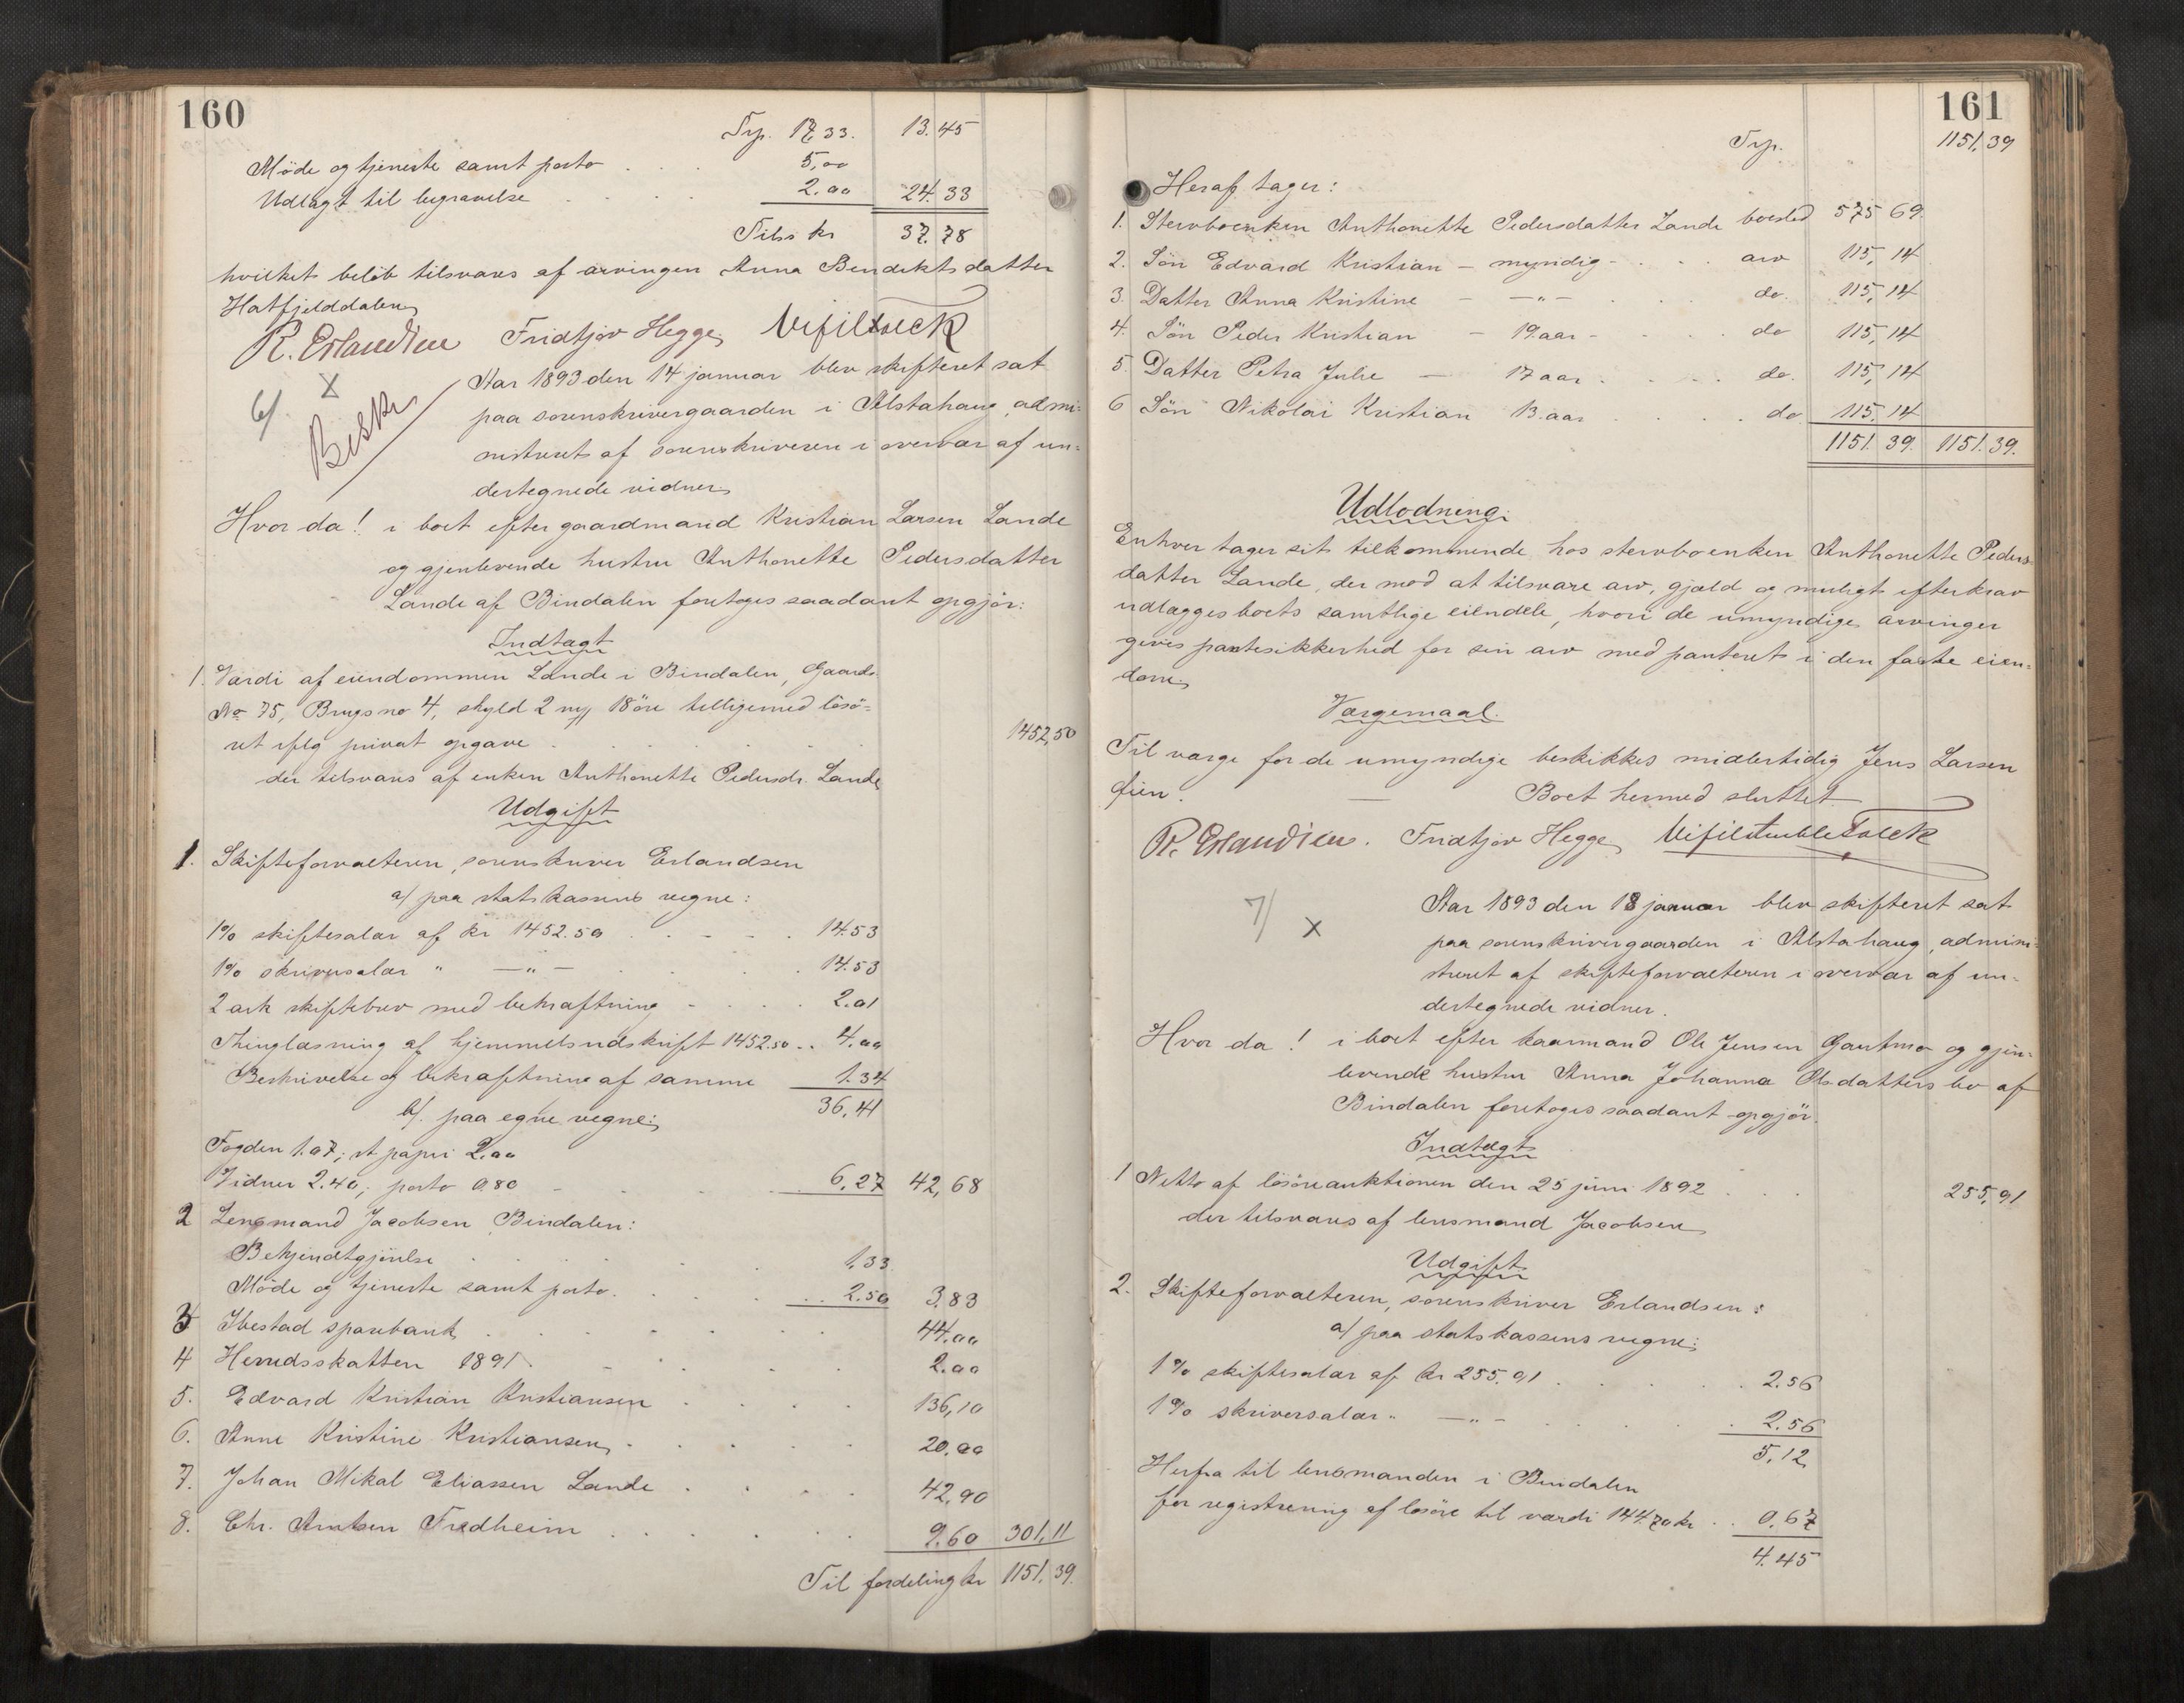 160
Trp. 17,33. 13.45
Möde og tjeneste samt porto . . . 5,00
Udlagt til begravelse . . . . 2.00 24.33
Tils kr 37.78
hvilket beløb tilsvares af arvingen Anna Bendiktsdatter
Hatfjelddalen
R. Erlandsen Fridtjov Hegge
6/ X Beskr
Aar 1893 den 14 januar blev skifteret sat
paa sorenskrivergaarden i Alstahaug, admi-
nistreret af sorenskriveren i overvær af un-
dertegnede vidner.
Hvor da! i boet efter gaardmand Kristian Larsen Lande
og gjenlevende hustru Anthonette Pedersdatter
Lande af Bindalen foretoges saadant opgjör:
Indtægt
1. Værdi af eiendommen Lande i Bindalen, Gaards-
No 75, Brugsno 4, skyld 2 my 18 öre tilligemed lösö-
ret ifølg privat opgave . . . . . . 1452,50
der tilsvares af enken Anthonette Pedersdr. Lande
Udgift
1. Skifteforvalteren, sorenskriver Erlandsen
a/ paa statskassens vegne:
1% skiftesalær af kr 1452.50 . . . . 14.53
1% skriversalær " —"— . . . . 14.53
2 ark skiftebrev med bekræftning . . . . 2.01
Thinglæsning af hjemmelsudskrift 1452.50 . . 4.00
Beskrivelse og bekræftning af samme 1.34
b/. paa egne vegne: 36,41
Fogden 1.07; st papir 2.00
Vidner 2.40; porto 0.80 . . . . 6,27 42,68
2 Lensmand Jacobsen Bindalen:
Bekjendtgjörelse . . . . . 1.33
Möde og tjeneste samt porto . . . . 2.50 3,83
3 Ibestad sparebank . . . . . . 44.00
4 Herredsskatten 1891 . . . . . 2.00
5. Edvard Kristian Kristiansen . . . . 136,10
6. Anne Kristine Kristiansen . . . . 20.00
7. Johan Mikal Eliassen Lande . . . . 42,90
8. Chr. Arntsen Fredheim . . . . . . 9.60 301,11
Til fordeling kr 1151.39.
161
Trp. 1151,39
Heraf tager:
1. Stervboenken Anthonette Pedersdatter Lande boeslod 575 69.
2. Sön Edvard Kristian — myndig — . . . arv 115,14
3. Datter Anna Kristine — —"— . . . do. 115,14
4. Sön Peder Kristian — 19 aar — . . . do 115,14
5. Datter Petra Julie — 17 aar . . . . do. 115,14
6 Sön Nikolai Kristian 13 aar . . . . do. 115.14
1151.39. 1151.39.
Udlodning.
Enhver tager sit tilkommende hos stervboenken Anthonette Peders-
datter Lande, der mod at tilsvare arv, gjæld og muligt efterkrav
udlægges boets samtlige eiendele, hvori de umyndige arvinger
gives pantesikkerhed for sin arv med panteret i den faste eien-
dom.
Værgemaal.
Til værge for de umyndige beskikkes midlertidig Jens Larsen
Qien. — Boet hermed sluttet
R. Erlandsen. Fridtjov Hegge
7/ X
Aar 1893 den 18 januar blev skifteret sat
paa sorenskrivergaarden i Alstahaug, admini-
streret af skifteforvalteren i overvær af un-
dertegnede vidner.
Hvor da! i boet efter kaarmand Ole Jensen Gautmo og gjen-
levende hustru Anna Johanna Olsdatters bo af
Bindalen foretoges saadant opgjör.
Indtægt
1 Netto af lösöreauktionen den 25 juni 1892 . . . 255,91
der tilsvares af lensmand Jacobsen
Udgift
2. Skifteforvalteren, sorenskriver Erlandsen:
a/ paa statskassens vegne:
1% skiftesalær af kr 255.91 . . . . . 2.56
1% skriversalær " —"— . . . . . 2.56
5,12
Herfra til lensmanden i Bindalen
for registrering af lösöre til værdi 144.70 kr . . 0.67
4.45